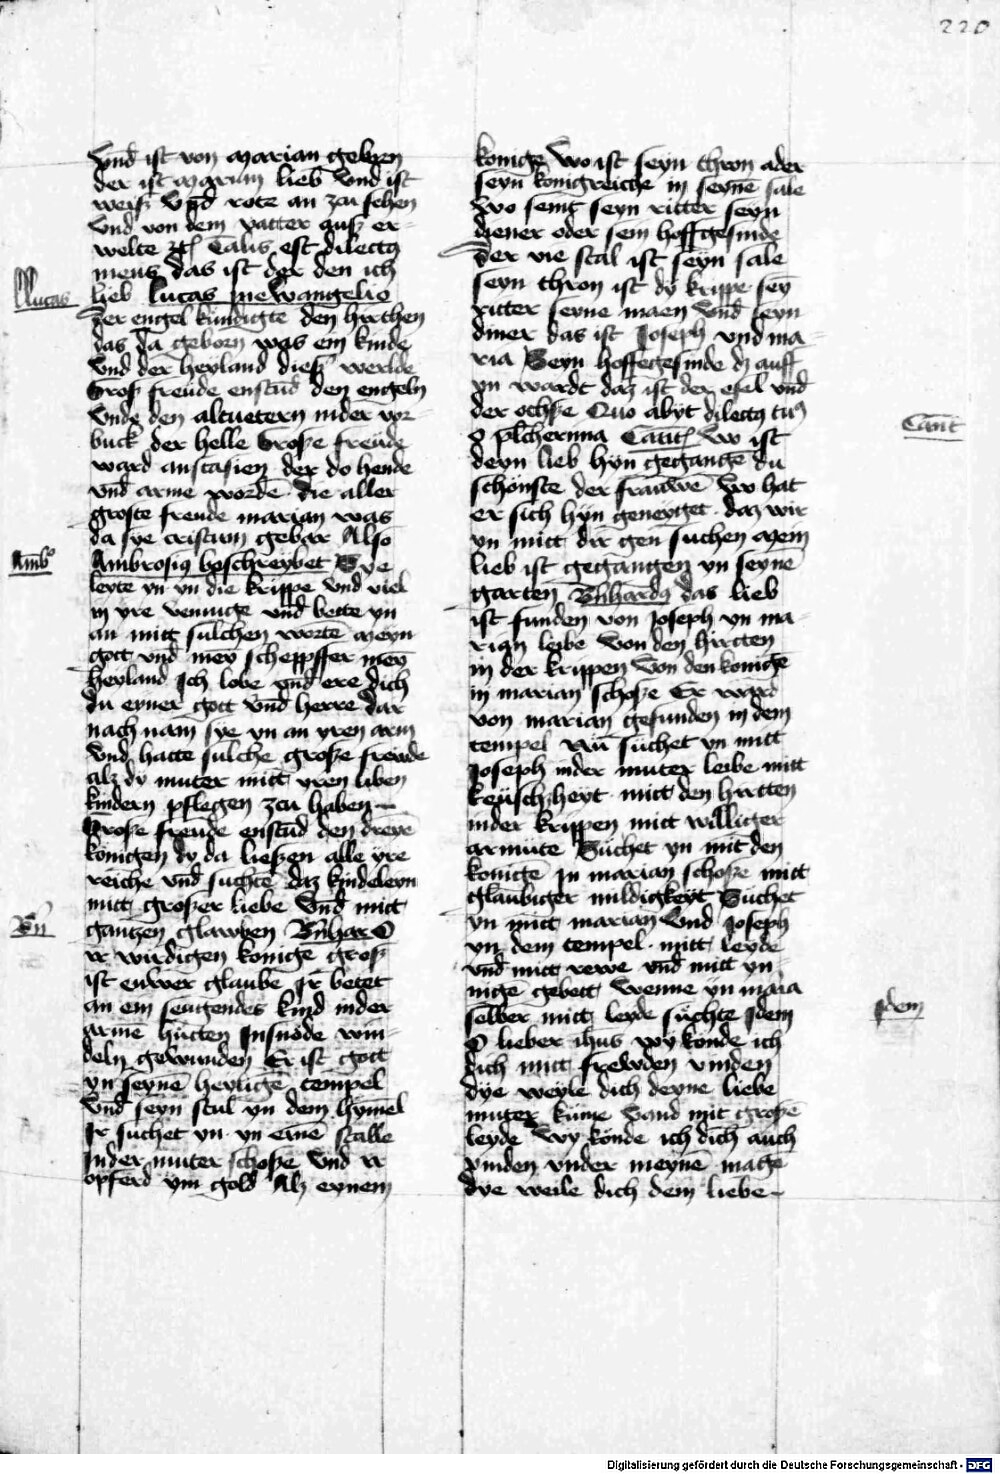 220
vnd ist von marian geborn
der ist mariam lieb vnd ist
weiß vnd rote an zcu sehen
vnd von dem vatter auß er-
welte Talis est dilectꝰ
meus das ist der den ich
lieb Lucas in ewangelio
Der engel kündigte den hirthen
das da geborn was ein kinde
vnd der heyland dießer werlde
Groß freude enstūd den engeln
vnde den altuetern in der vor-
buck der helle Große freude
ward anstasien der do hende
vnd arme wordē die aller
groste freude marian was
da sye cristum gebar Also
Ambrosiꝰ beschreybet Sye
leyte yn yn die krippe vnd viel
in yre vennige vnd bette yn
an mitt sulchen wortē meyn
gott vnd mey scheppffer mey
heyland Ich lobe vnd ere dich
du eyner gott vnd herre dar
nach nam sye yn an yren arm
vnd hatte sulche große frewde
alz dy muter mitt yren liben
kindern pflegen zcu haben
Große freude enstūd den dreyē
königen dy da ließen alle yre
reiche vnd suchtē daz kindeleyn
mitt großer liebe vnd mitt
gantzen glawben Bnhard O
ir wirdigen konige groß
ist enwer glaube Ir betet
an ein seugendes kind in der
armē hütten In snöde win-
deln gewunden Er ist gott
yn seynē heyligē tempel
vnd seyn stul yn dem hymel
Ir suchet yn yn einē stalle
In der muter schoße vnd ir
opferd ym gold Alz eynem
konige Wo ist seyn thron ader
seyn konigreiche in seyne sale
Wo seint seyn ritter seyn
diener oder sein hoffgesinde
Der vie stal ist seyn sale
seyn thron ist dy krippe sey
ritter seyne maen vnd seyn
diner das ist Joseph vnd ma-
ria Seyn hoffegesinde dz auff
yn wardt daz ist der esel vnd
der ochße Quo abyt dilectꝰ tuꝰ
o pulcherima Cant Wo ist
deyn lieb hyn gegangē du
schönste der frauwē Wo hat
er sich hyn geneyget daz wir
yn mitt dir gen suchen Mein
lieb ist gegangen yn seynē
garten Bnhardꝰ das lieb
ist funden von Joseph yn ma-
rian leibe Von den hirtten
in der krippen Von den konigē
in marian schoße Er ward
von marian gefunden in dem
tempel Nū süchet yn mitt
Joseph in der muter leibe mitt
keüschheyt mitt den hirtten
in der krippen mitt williger
armute Süchet yn mit den
konigē In marian schoße mitt
glaubiger mildigkeyt Süchet
yn mitt marian vnd Joseph
yn dem tempel mitt leyde
vnd mitt rewe vnd mitt yn-
nigē gebett Wenne yn maria
selber mitt leyde süchte Idem
O lieber ihus wy konde ich
dich mitt frewden vinden
dye weyle dich deyne liebe
muter kume vand mit großē
leyde Wy könde ich dich auch
vinden vnder meynē magē
dye weile dich dein liebe
Lucas
Ambꝰ
Bn
Cant
Idem
Digitalisierung gefördert durch die Deutsche Forschungsgemeinschaft - DFG